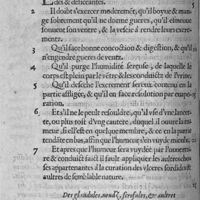 des & desiccantes.
2 Il doibt s'exercer mondemēt, qu'il boyue & man
ge sobrement qu'il ne dorme gueres, qu'il esmeue
souuent son ventre, & la vescie à rendre leurs excre-
mens.
3 Qu'il face bonne concoction & digestion, & qu'il
n'engendre gueres de vents.
4 Qu'il purge l'humidité sereuse, de laquelle le
corps est plein par le vētre & les conduictz de l'vrine.
5 Qu'il deseche l'excrement sereux contenu en la
partie affligée, & qu'il en face resolution par euapo-
ration.
6 Et s'il ne le peult resouldre, qu'il vse d'incarter,
ou, en plus tost d'vng cautere, duquel il ouure la tu-
meur, si elle est en quelque membre, & ce en la partie
tendāte en bas, affin que l'humeur soit vuydé mieux.
7 Et apres que l'humeur sera vuydé par l'ouuertu
re & conduict faict il fault appliquer les aultres cho-
ses appartenantes à la curation des vlceres sordides &
autres de semblable nature.
Des glādules, neudz, scrofules, & aultres